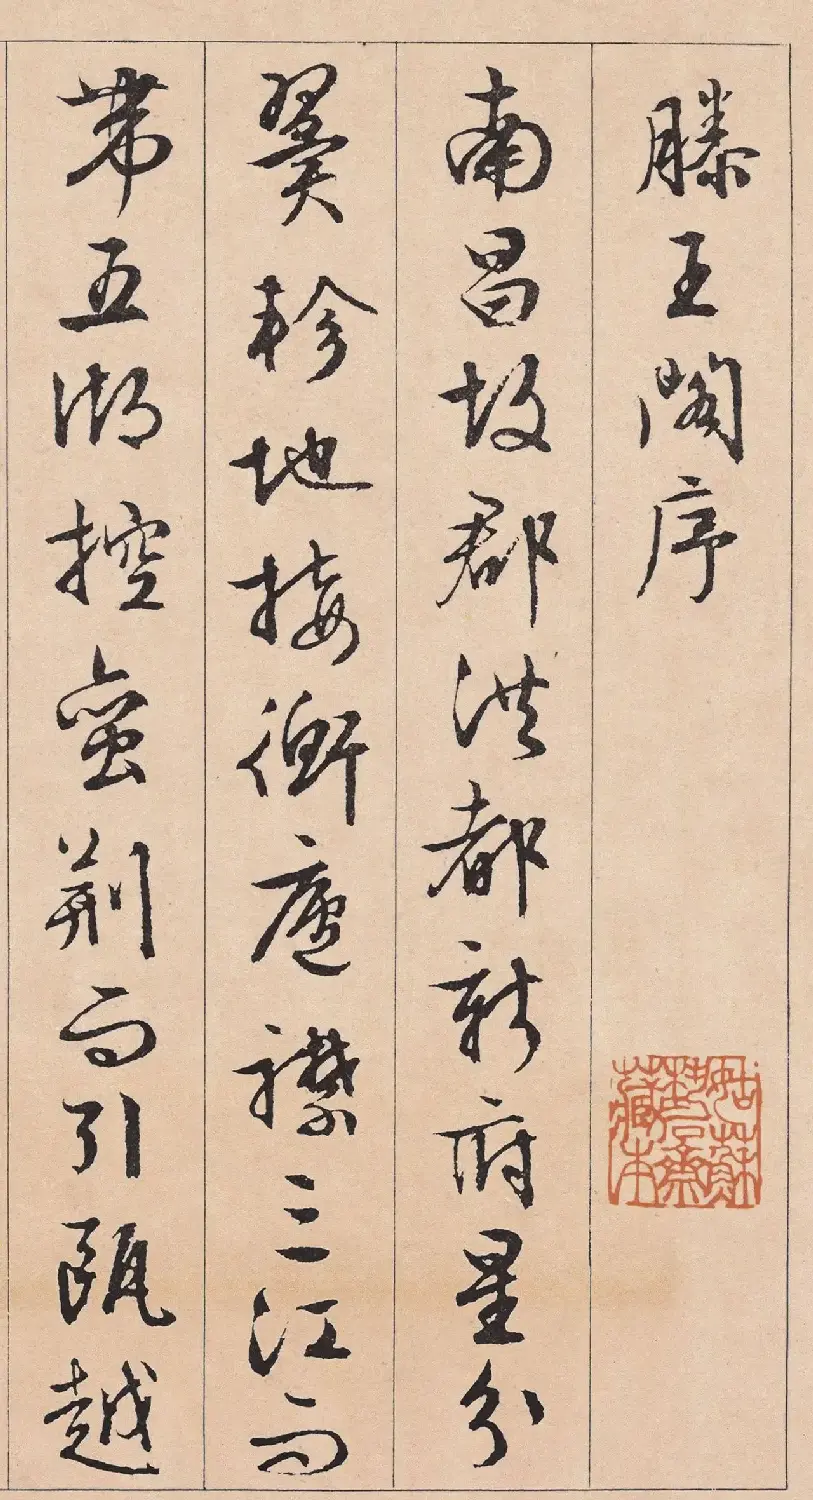 滕王閣序
南昌故郡洪都新府星分
翼軫地接衡廬襟三江而
帶五湖控蠻荊而引甌越
姑蘇
齋
藏本